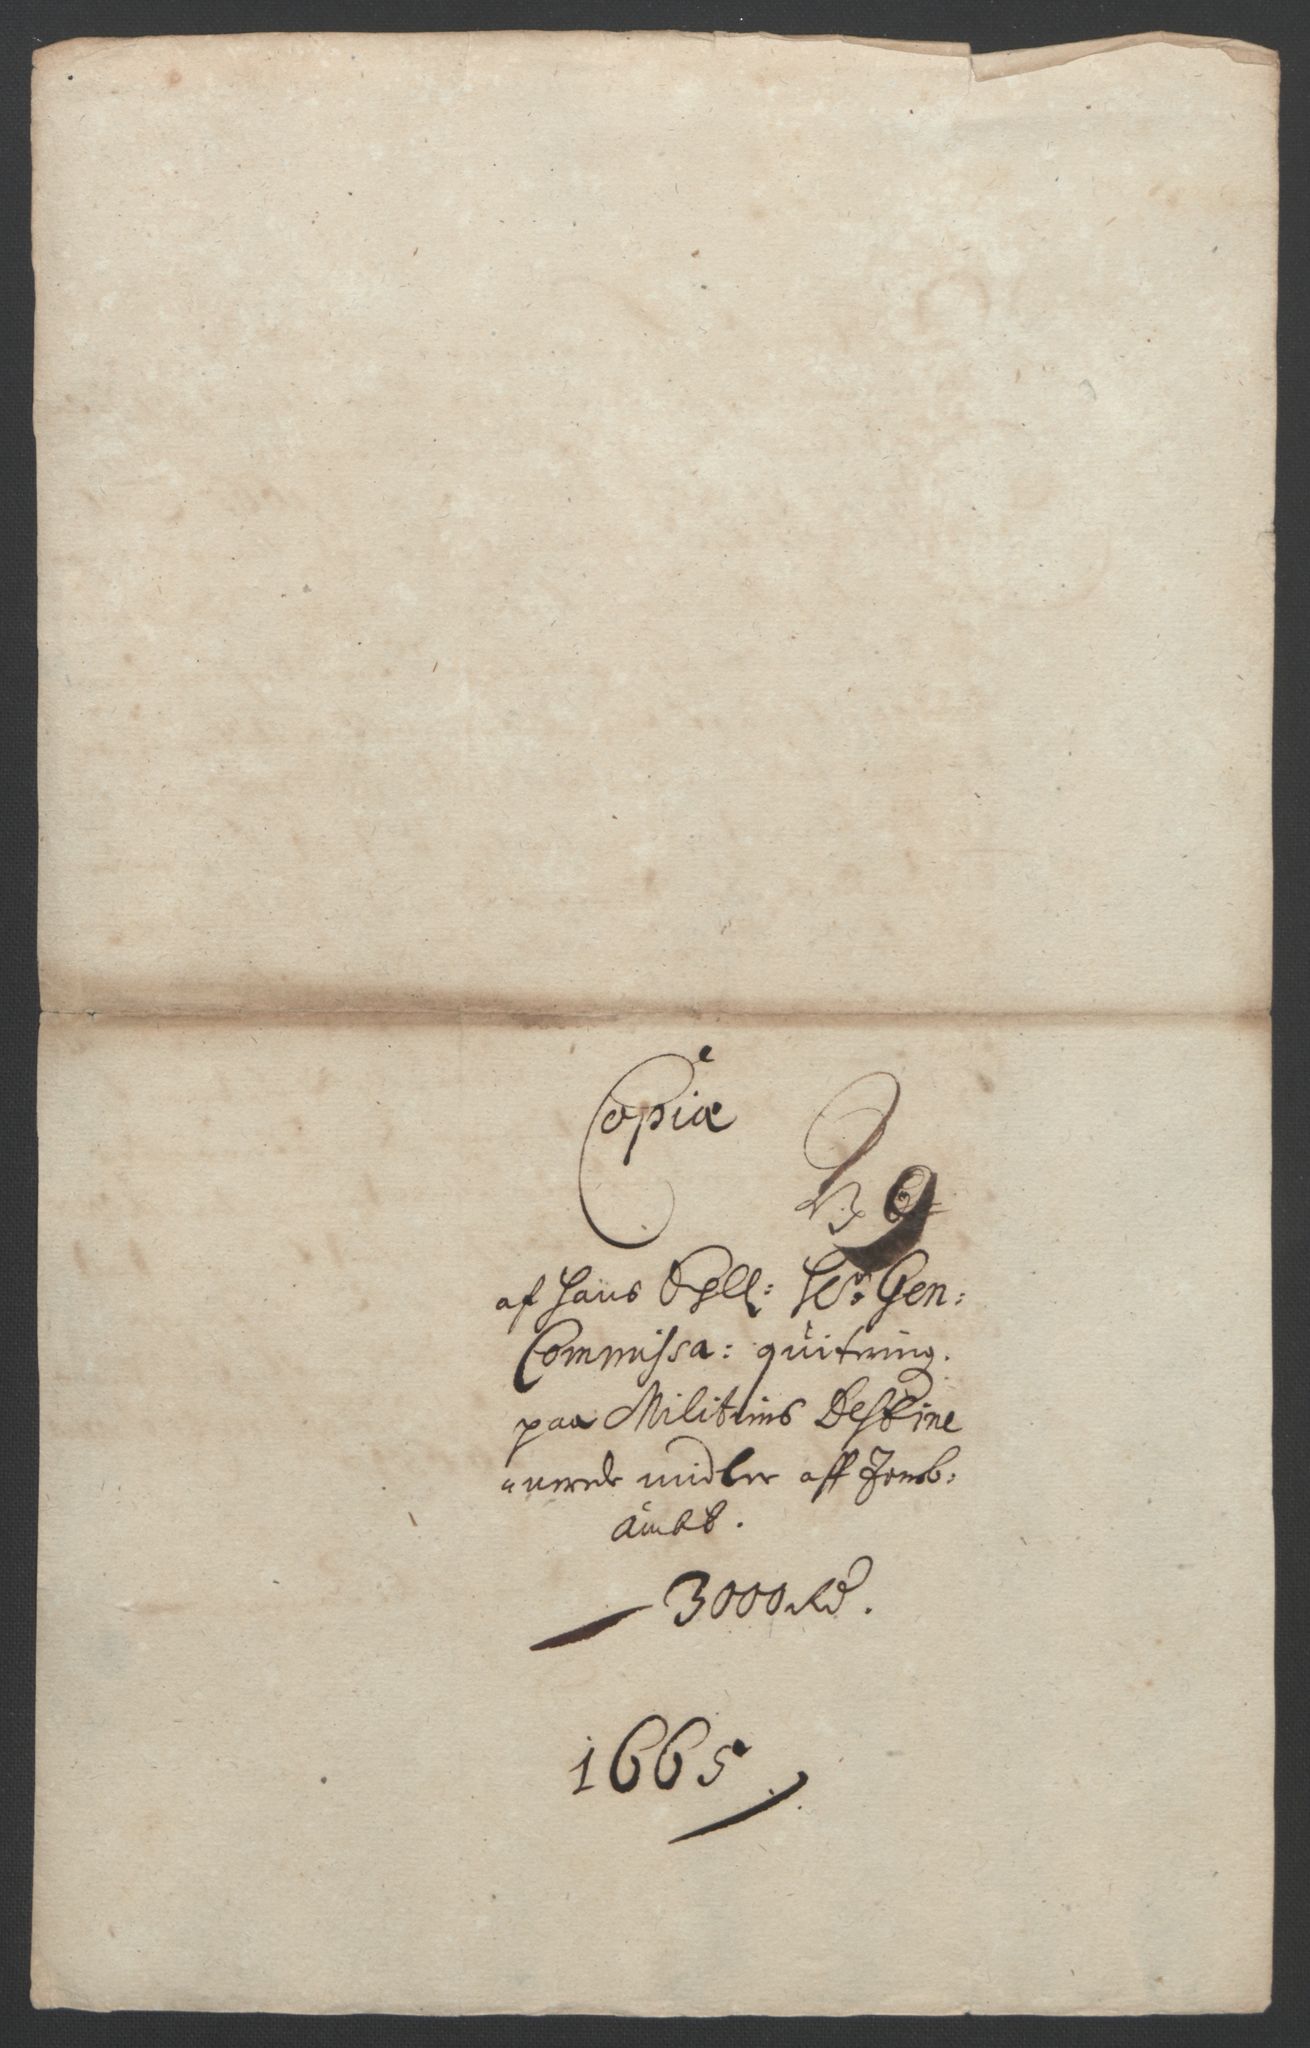 Copiæ
af Hans Exell: Hr: Gen:
Commissa: quitering.
paa Militiens Destine
nerede midler aff
ambt.
3000 Rd.
1665